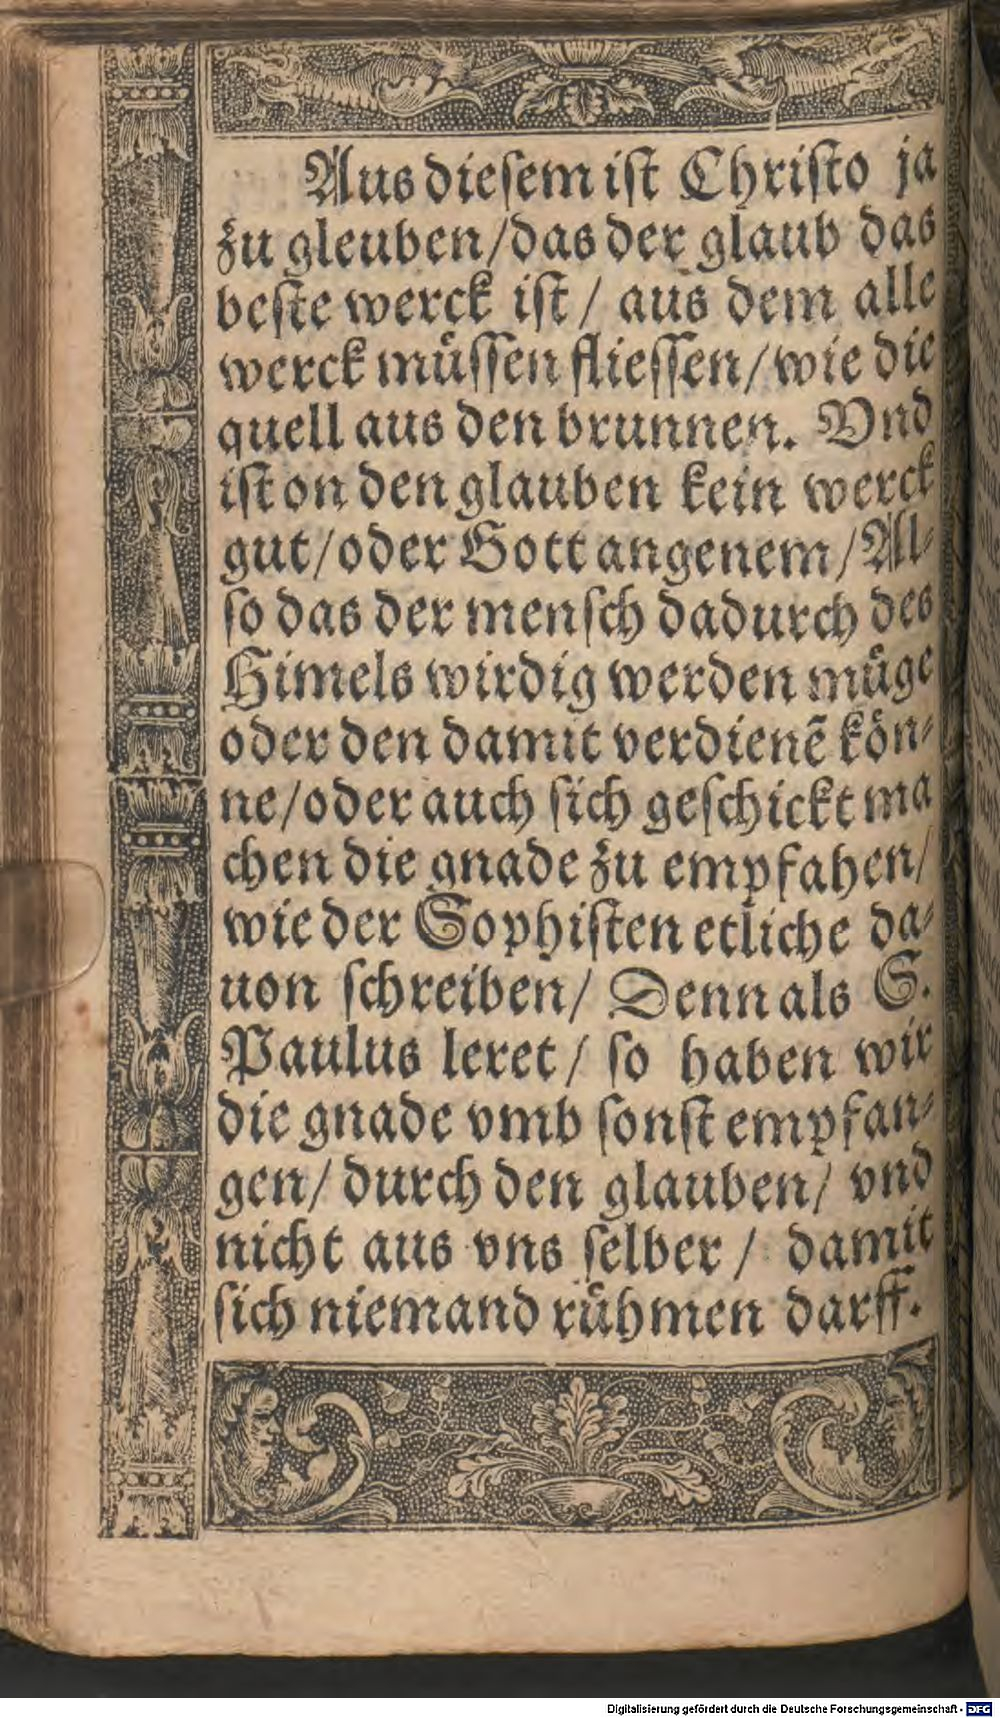 Aus dieſem iſt Chriſto ja
zu gleuben/das der glaub das
beſte werck iſt / aus dem alle
werck muͤſſen flieſſen/wie die
quell aus den brunnen. Vnd
iſt on den glauben kein werck
gut/oder Gott angenem/All-
ſo das der menſch dadurch des
Himels wirdig werden muͤge
oder den damit verdienẽ koͤn-
ne/oder auch ſich geſchickt ma
chen die gnade zu empfahen/
wie der Sophiſten etliche da-
uon ſchreiben/ Denn als S.
Paulus leret/ ſo haben wir
die gnade vmb ſonſt empfan-
gen/ durch den glauben/ vnd
nicht aus vns ſelber / damit
ſich niemand ruͤhmen darff.
Digitalisierung gefördert durch die Deutsche Forschungsgemeinschaft - DFG